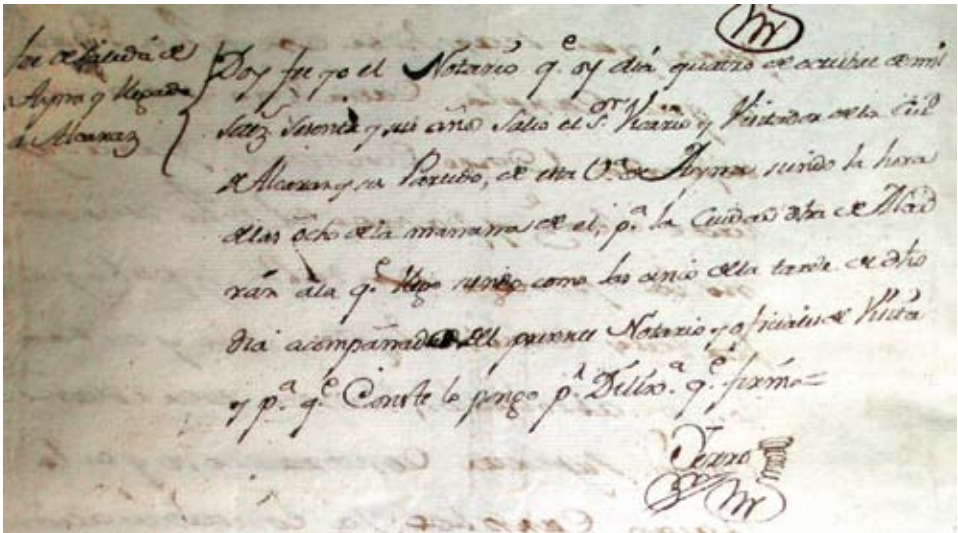 fee de salida de
Ayna y llegada
a Alcaraz
Doy fee yo el Notario q.e oy dia quatro de octubre de mil
setez.s setenta y seis años salio el S.r Vicario y Visitador de la Ciud.
de Alcaraz y su Partido, de esta V.a de Ayna, siendo la hora
de las ocho de la mañana de el, p.a la Ciudad dha de
a la q.e llego siendo como las cinco de la tarde de dho
dia acompañado del presente Notario y oficiales de Visita
y p.a q.e Conste lo pongo p.r Dilix.a q.e firmo=
Ferro